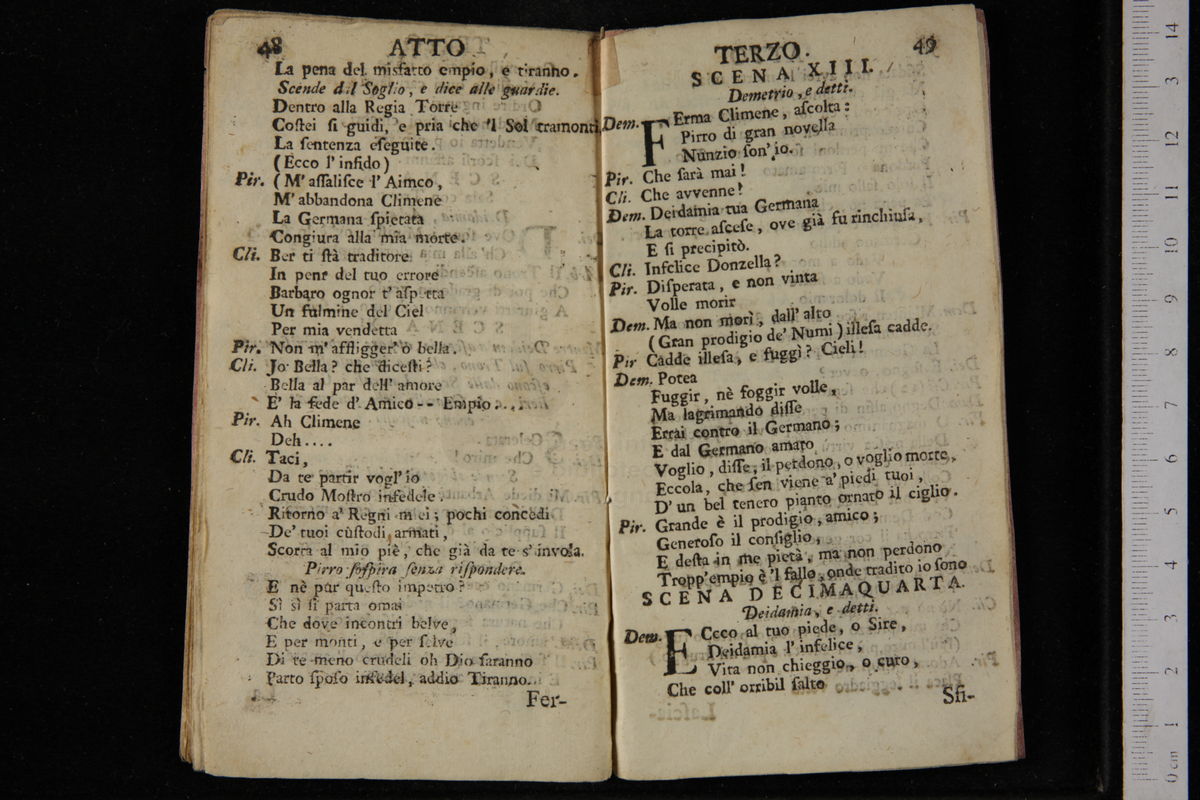 48 ATTO
La pena del misfatto empio, e tiranno.
Scende dal Soglio, e dice alle guardie.
Dentro alla Regia Torre
Coſtei ſi guidi, e pria che 'l Sol tramonti
La ſentenza eſeguite.
(Ecco l' infido)
Pir. (M' aſſaliſce l' Aimco,
M' abbandona Climene
La Germana ſpietata
Congiura alla mia morte.
Cli. Ber ti ſtà traditore
In pene del tuo errore
Barbaro ognor t' aſpetta
Un fulmine del Ciel
Per mia vendetta
Pir. Non m' affligger' ò bella.
Cli. Jo Bella? che diceſti?
Bella al par dell' amore
E' la fede d' Amico -- Empio...
Pir. Ah Climene
Deh....
Cli. Taci,
Da te partir vogl' io
Crudo Moſtro infedele.
Ritorno a' Regni miei; pochi concedi
De' tuoi cùſtodi armati,
Scorra al mio piè, che già da te s' invola.
Pirro ſoſpira ſenza riſpondere.
E nè pur queſto impetro?
Sì sì ſi parta omai
Che dove incontri belve,
E per monti, e per ſelve
Di te meno crudeli oh Dio ſaranno
Parto ſpoſo infedel, addio Tiranno.
Fer-
TERZO. 49
SCENA XIII.
Demetrio, e detti.
Dem. FErma Climene, aſcolta:
Pirro di gran novella
Nunzio ſon' io.
Pir. Che ſarà mai!
Cli. Che avvenne!
Dem. Deidamia tua Germana
La torre aſceſe, ove già fu rinchiuſa,
E ſi precipitò.
Cli. Infelice Donzella?
Pir. Diſperata, e non vinta
Volle morir
Dem. Ma non morì, dall' alto
(Gran prodigio de' Numi) illeſa cadde.
Pir Cadde illeſa, e fuggì? Cieli!
Dem. Potea
Fuggir, nè foggir volle,
Ma lagrimando diſſe
Errai contro il Germano;
E dal Germano amato
Voglio, diſſe, il perdono, o voglio morte,
Eccola, che ſen viene a' piedi tuoi,
D' un bel tenero pianto ornato il ciglio.
Pir. Grande è il prodigio, amico;
Generoſo il conſiglio,
E deſta in me pietà, ma non perdono
Tropp' empio è 'l fallo, onde tradito io ſono
SCENA DECIMAQUARTA.
Deidamia, e detti.
Dem. ECcco al tuo piede, o Sire,
Deidamia l' infelice,
Vita non chieggio, o curo,
Che coll' orribil ſalto
Sfi-